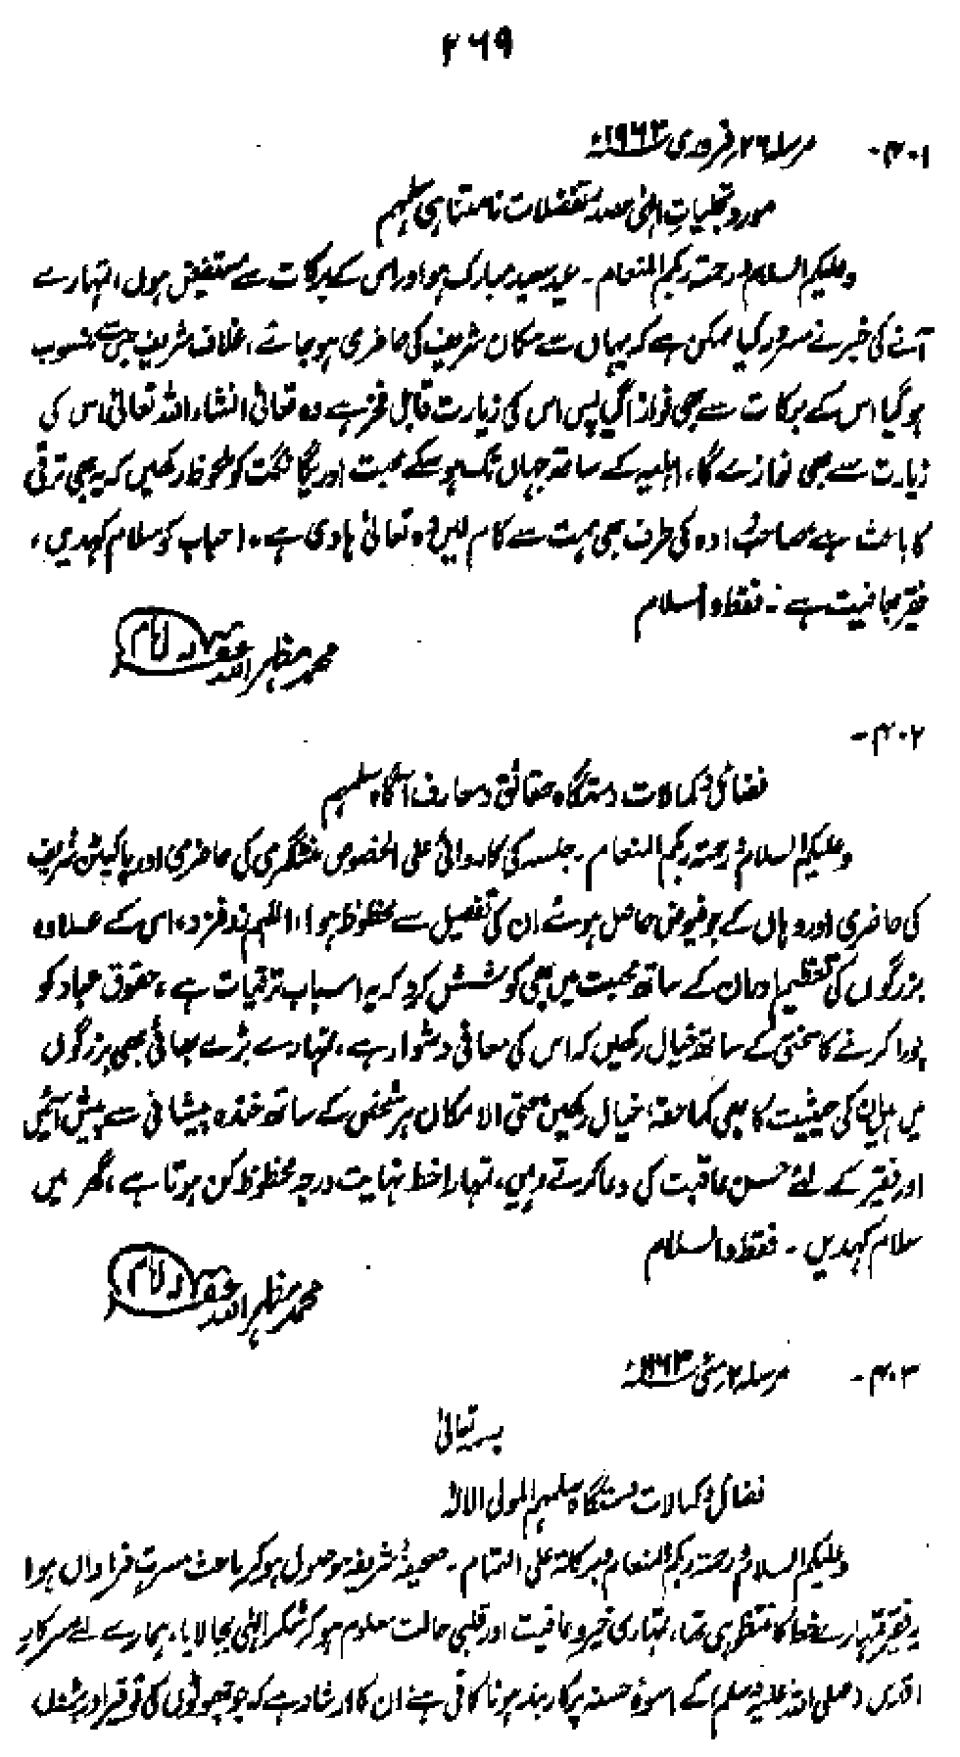 ۲۶۹
۴۰۱- مرسلہ ۲۶ فروری ۱۹۶۳ء
مورد تجلیات الٰہی مصدر تفضلات نامتناہی سلمہم
وعلیکم السلام ورحمۃ ربکم المنعام۔ عید سعید مبارک ہو اور اس کے برکات سے مستفیض ہوں، تمہارے
آنے کی خبر نے مسرور کیا ممکن ہے کہ یہاں سے مکان شریف کی حاضری ہو جائے، غلاف شریف جس سے منسوب
ہو گیا اس کے برکات سے بھی نوازا گیا پس اس کی زیارت قابل فخر ہے وہ تعالیٰ انشاء اللہ تعالیٰ اس کی
زیارت سے بھی نوازے گا، اہلیہ کے ساتھ جہاں تک ہو سکے محبت اور یگانگت کو ملحوظ رکھیں کہ یہ بھی ترقی
کا باعث ہے صاحبزادہ کی طرف بھی ہمت سے کام لیں وہ تعالیٰ ہادی ہے۔ احباب کو سلام کہدیں،
فقیر بعافیت ہے۔ فقط والسلام
محمد مظہر اللہ غفرلہ الامام
۴۰۲-
فضائل وکمالات دستگاہ حقائق ومعارف آگاہ سلمہم
وعلیکم السلام ورحمۃ ربکم المنعام۔ جلسہ کی کاروائی علی الخصوص منٹگمری کی حاضری اور پاکپٹن شریف
کی حاضری اور وہاں کے جو فیوض حاصل ہوئے ان کی تفصیل سے محظوظ ہوا، اللہم زد فزد، اس کے علاوہ
بزرگوں کی تعظیم اور ان کے ساتھ محبت میں بھی کوشش کرو کہ یہ اسباب ترقیات ہے، حقوق عباد کو
پورا کرنے کا سختی کے ساتھ خیال رکھیں کہ اس کی معافی دشوار ہے، تمہارے بڑے بھائی بھی بزرگوں
میں ہیں ان کی حیثیت کا بھی کماحقہ خیال رکھیں حتی الامکان ہر شخص کے ساتھ خندہ پیشانی سے پیش آئیں
اور فقیر کے لئے حسن عاقبت کی دعا کرتے رہیں، تمہارا خط نہایت درجہ محظوظ کن ہوتا ہے، گھر میں
سلام کہدیں۔ فقط والسلام
محمد مظہر اللہ غفرلہ الامام
۴۰۳- مرسلہ ۲ مئی ۱۹۶۳ء
بسمہ تعالیٰ
فضائل وکمالات دستگاہ سلمہم المولی الالہ
وعلیکم السلام ورحمۃ ربکم المنعام وبرکاتہ علی التمام۔ صحیفۂ شریفہ موصول ہو کر باعث مسرت فراواں ہوا
یہ فقیر تمہارے خط کا منتظر ہی تھا، تمہاری خیر و عافیت اور قلبی حالت معلوم ہو کر شکر الٰہی بجا لایا، ہمارے لئے سرکار
اقدس (صلی اللہ علیہ وسلم) کے اسوۂ حسنہ پر کاربند ہونا کافی ہے ان کا ارشاد ہے کہ جو چھوٹوں کی توقیر اور بڑوں